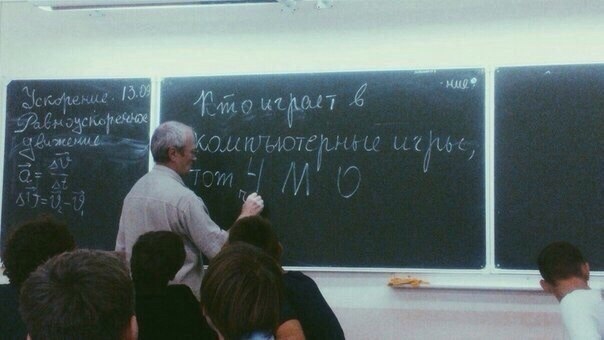 Ускорение. 13.09
Равноускоренное
движение
a⃗ = Δv⃗ / Δt
Δv⃗ = v⃗₂ - v⃗₁
-ния?
Кто играет в
компьютерные игры,
тот Ч М О